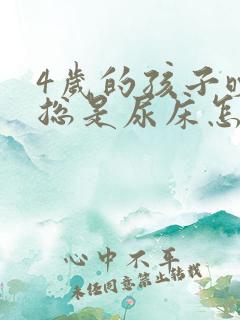 4岁的孩子晚
总是尿床怎
心中不平
未经同意禁止转载